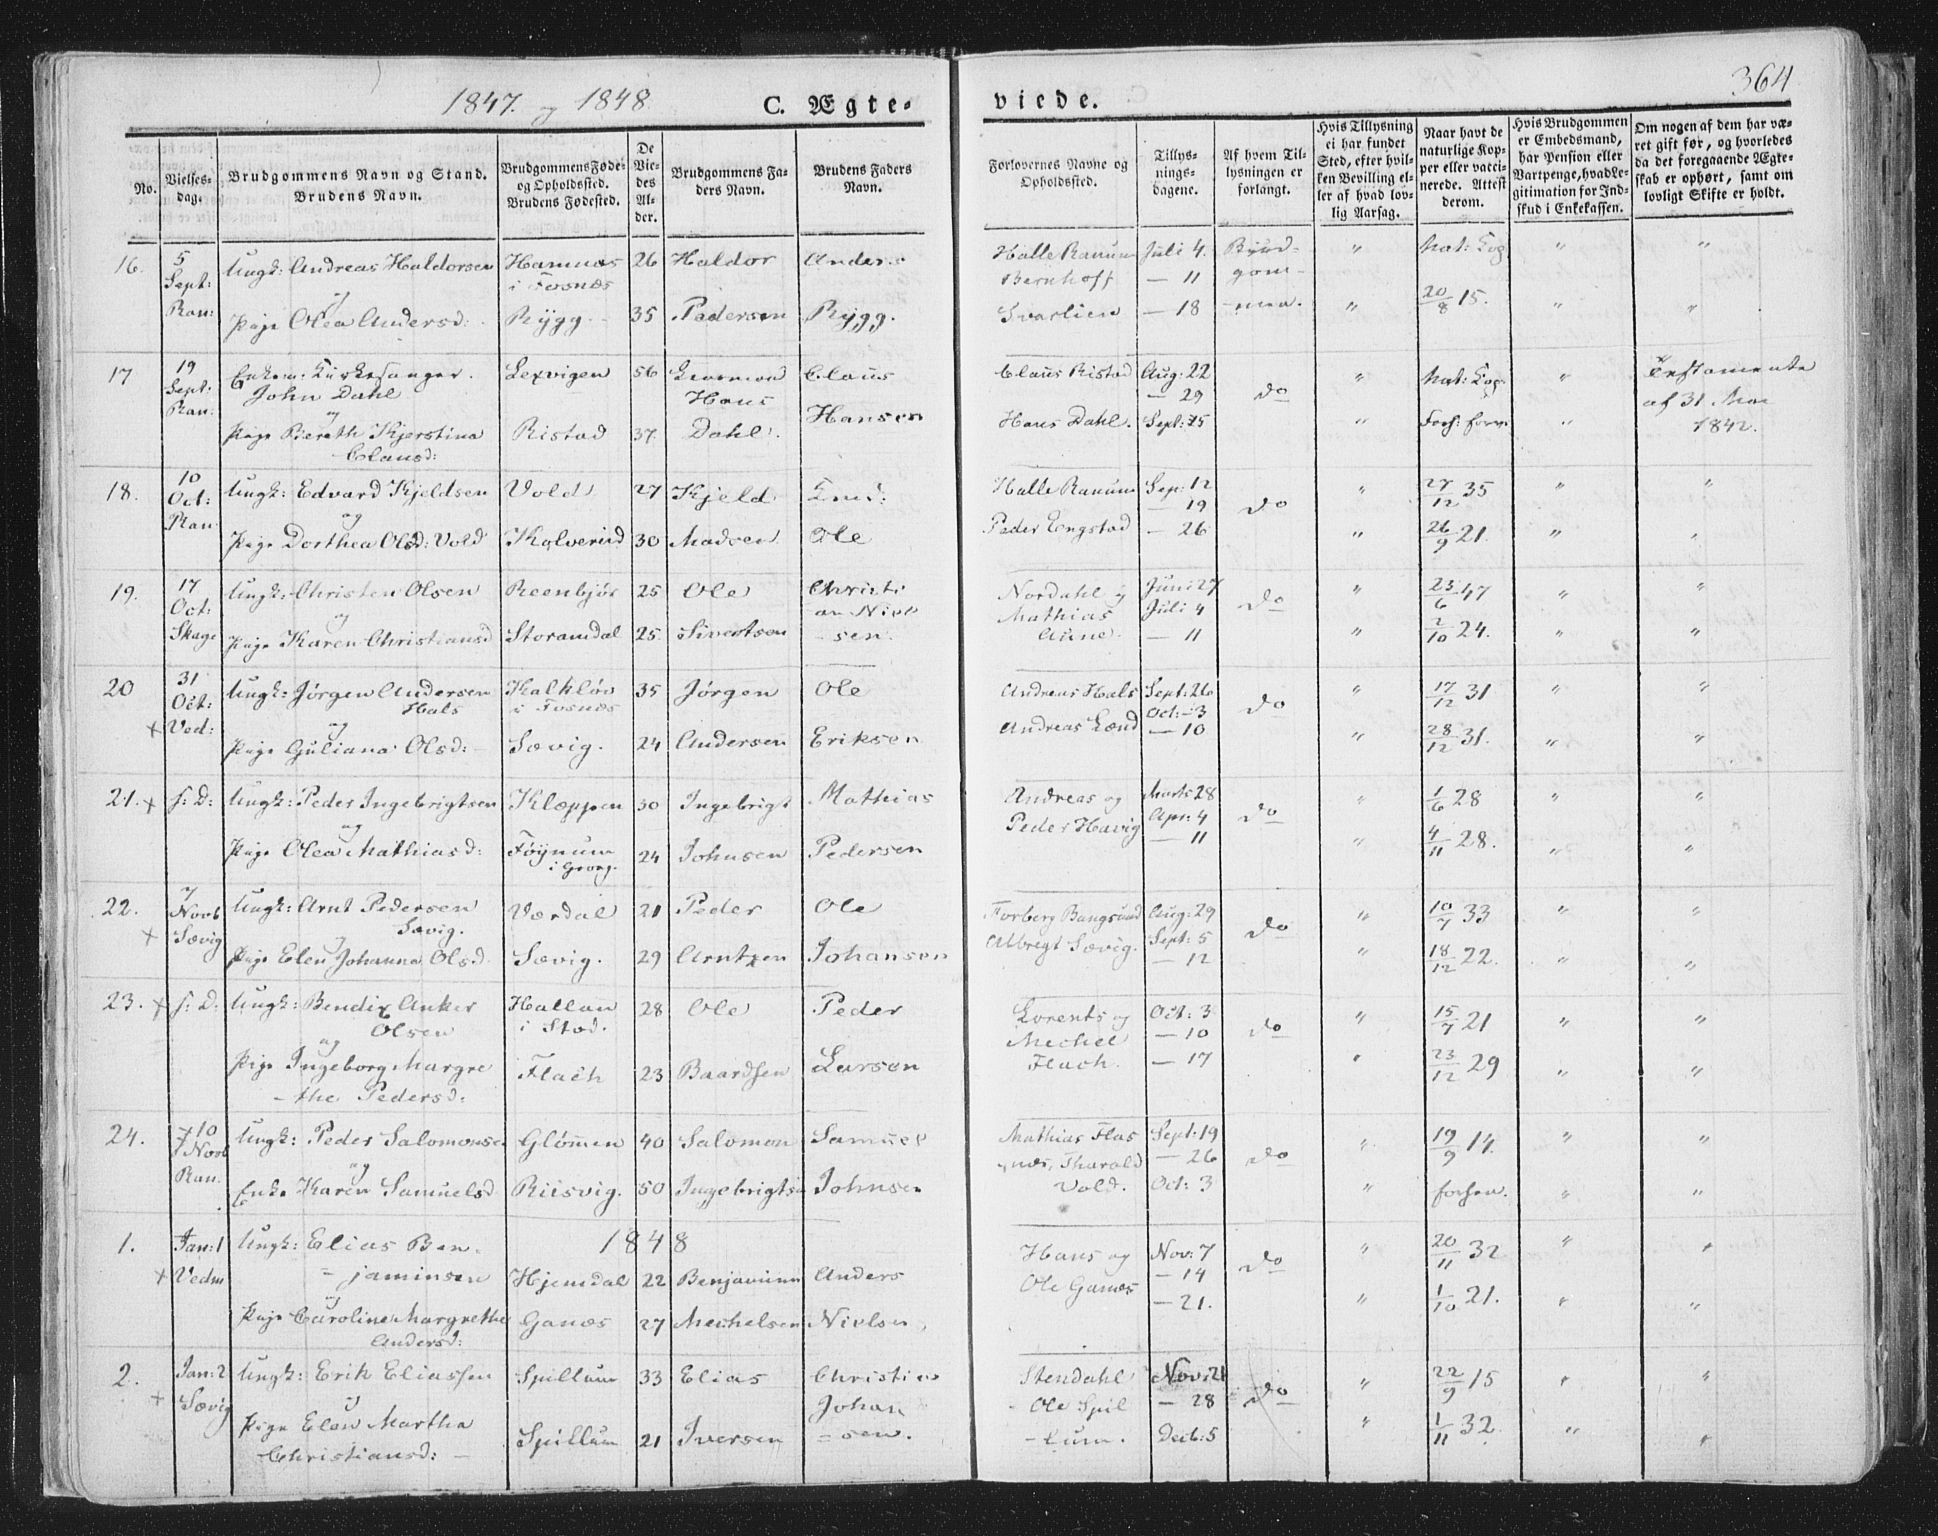 1847. og 1848.
C. Ægte-
viede.
364
No.
Vielses-
dag.
Brudgommens Navn og Stand.
Brudens Navn.
Brudgommens Føde-
og Opholdssted.
Brudens Fødested.
De
Vie-
des
Al-
der.
Brudgommens Fa-
ders Navn.
Brudens Faders
Navn.
Forlovernes Navne og
Opholdssted.
Tillys-
nings-
dagene.
Af hvem Til-
lysningen er
forlangt.
Hvis Tillysning
ei har fundet
Sted, efter hvil-
ken Bevilling el-
ler af hvad lov-
lig Aarsag.
Naar havt de
naturlige Kop-
per eller vacci-
nerede. Attest
derom.
Hvis Brudgommen
er Embedsmand,
har Pension eller
Vartpenge, hvad Le-
gitimation for Ind-
skud i Enkekassen.
Om nogen af dem har væ-
ret gift før, og hvorledes
da det foregaaende Ægte-
skab er ophørt, samt om
lovligt Skifte er holdt.
16. 5 Sept: Ran:
Ungk: Andreas Haldorsen Hamnæs i Fosnæs 26 Haldor Anders
og
Pige Olea Andersd: Rygg 35 Pedersen Rygg.
Halle Ranum Juli 4. Brud- " Nat: Kop " "
Bernhoff — 11 gom-
Svarlien — 18 men. " 20/8 15. " "
17 19 Sept: Ran:
Enkem: Kirkesanger Lexvigen 56 Claus
John Dahl Hans
og
Pige Bereth Kjerstina Ristad 37 Dahl. Hansen
Clausd:
Claus Ristad Aug: 22 " Nat: Kop " Testamente
— 29 do af 31 Mai
Hans Dahl. Sept: " " 1842.
18. 10 Oct: Ran
Ungk: Edvard Kjeldsen Vold 27 Kjeld
og
Pige Dorthea Olsd: Vold Kolverid 30 Madsen Ole
Halle Ranum Sep: 12 " 27/12 35 " "
— 19 do
Peder Engstad — 26 " 26/9 21. "
19. 17 Oct: Skage
Ungk: Christen Olsen Reenbjør 25 Ole Christi
og an Niel
Pige Karen Christiansd Storamdal 25. Sivertsen - sen.
Nordahl og Juni 27 " 23/6 47 " "
Mathias Juli 4 do
Aune. — 11 " 2/10 24. " "
20 31 Oct: + Ved:
Ungk: Jørgen Andersen Kalkløv 35 Jørgen Ole
Hals i Fosnæs
og
Pige Guliana Olsd: Sævig. 24 Andersen Eriksen
Andreas Hals Sept: 26 " 17/12 31 " "
Oct: 3 do
Andreas Lænd — 10 " 28/12 31. " "
21. + s: D:
Ungk: Peder Ingebrigtsen Klæppen 30 Ingebrigt Mathias
og
Pige Olea Mathiasd: Føynum 24 Johnsen Pedersen
i Grong.
Andreas og Marts 28 " 1/6 28 " "
Peder Havig Apr: 4 do
— 11 " 4/11 28. " "
22. 7 Novb + Sævig
Ungk: Arnt Pedersen Værdal 21 Peder Ole
Sævig.
og
Pige Elen Johanna Olsd. Sævig. 29 Arntzen Johansen
Forberg Bangsund Aug: 29 " 10/7 33 " "
Albregt Sævig. Sept: 5 do
— 12 " 18/12 22. " "
23. + s: D:
Ungk: Bendix Anker Hallan 28 Ole Peder
Olsen i Stod.
og
Pige Ingeborg Margre Flach 23 Baardsen Larsen
- the Pedersd:
Lorents og Oct: 3 " 15/7 21 " "
Mechel — 10 do
Flach. — 17 " 23/12 29 " "
24. 10 Novb Ran.
Ungk: Peder Salomonse Glömen 40 Salomon Samuel
og
Enke Karen Samuelsd Riisvig. 50 Ingebrigtsen Johnsen
Mathias Flas Sept: 19 " 19/9 14. " "
næs, Tharald — 26 do
Vold. Oct: 3 " " "
1. Jan: 1 + Vedm
1848
Ungk: Elias Ben-
- jaminsen Hjemdal 22 Benjamin Anders
og
Pige Caroline Margrethe Ganæs 27 Mechelsen Nielsen
Andersd:
Hans og Nov: 7 " 20/11 32 " "
Ole Ganæs — 14 do
— 21. " 1/10 21. " "
2. Jan: 2 + Sævig
Ungk: Erik Eliassen Spillum 33 Elias Christian
og Johan
Pige Elen Martha Spillum 21 Iversen = sen.
Christiansd:
Stendahl Nov: 21 " 22/9 15 " "
- Ole Spil — 28 do
- lum. Decb: 5 " 1/11 32. " "